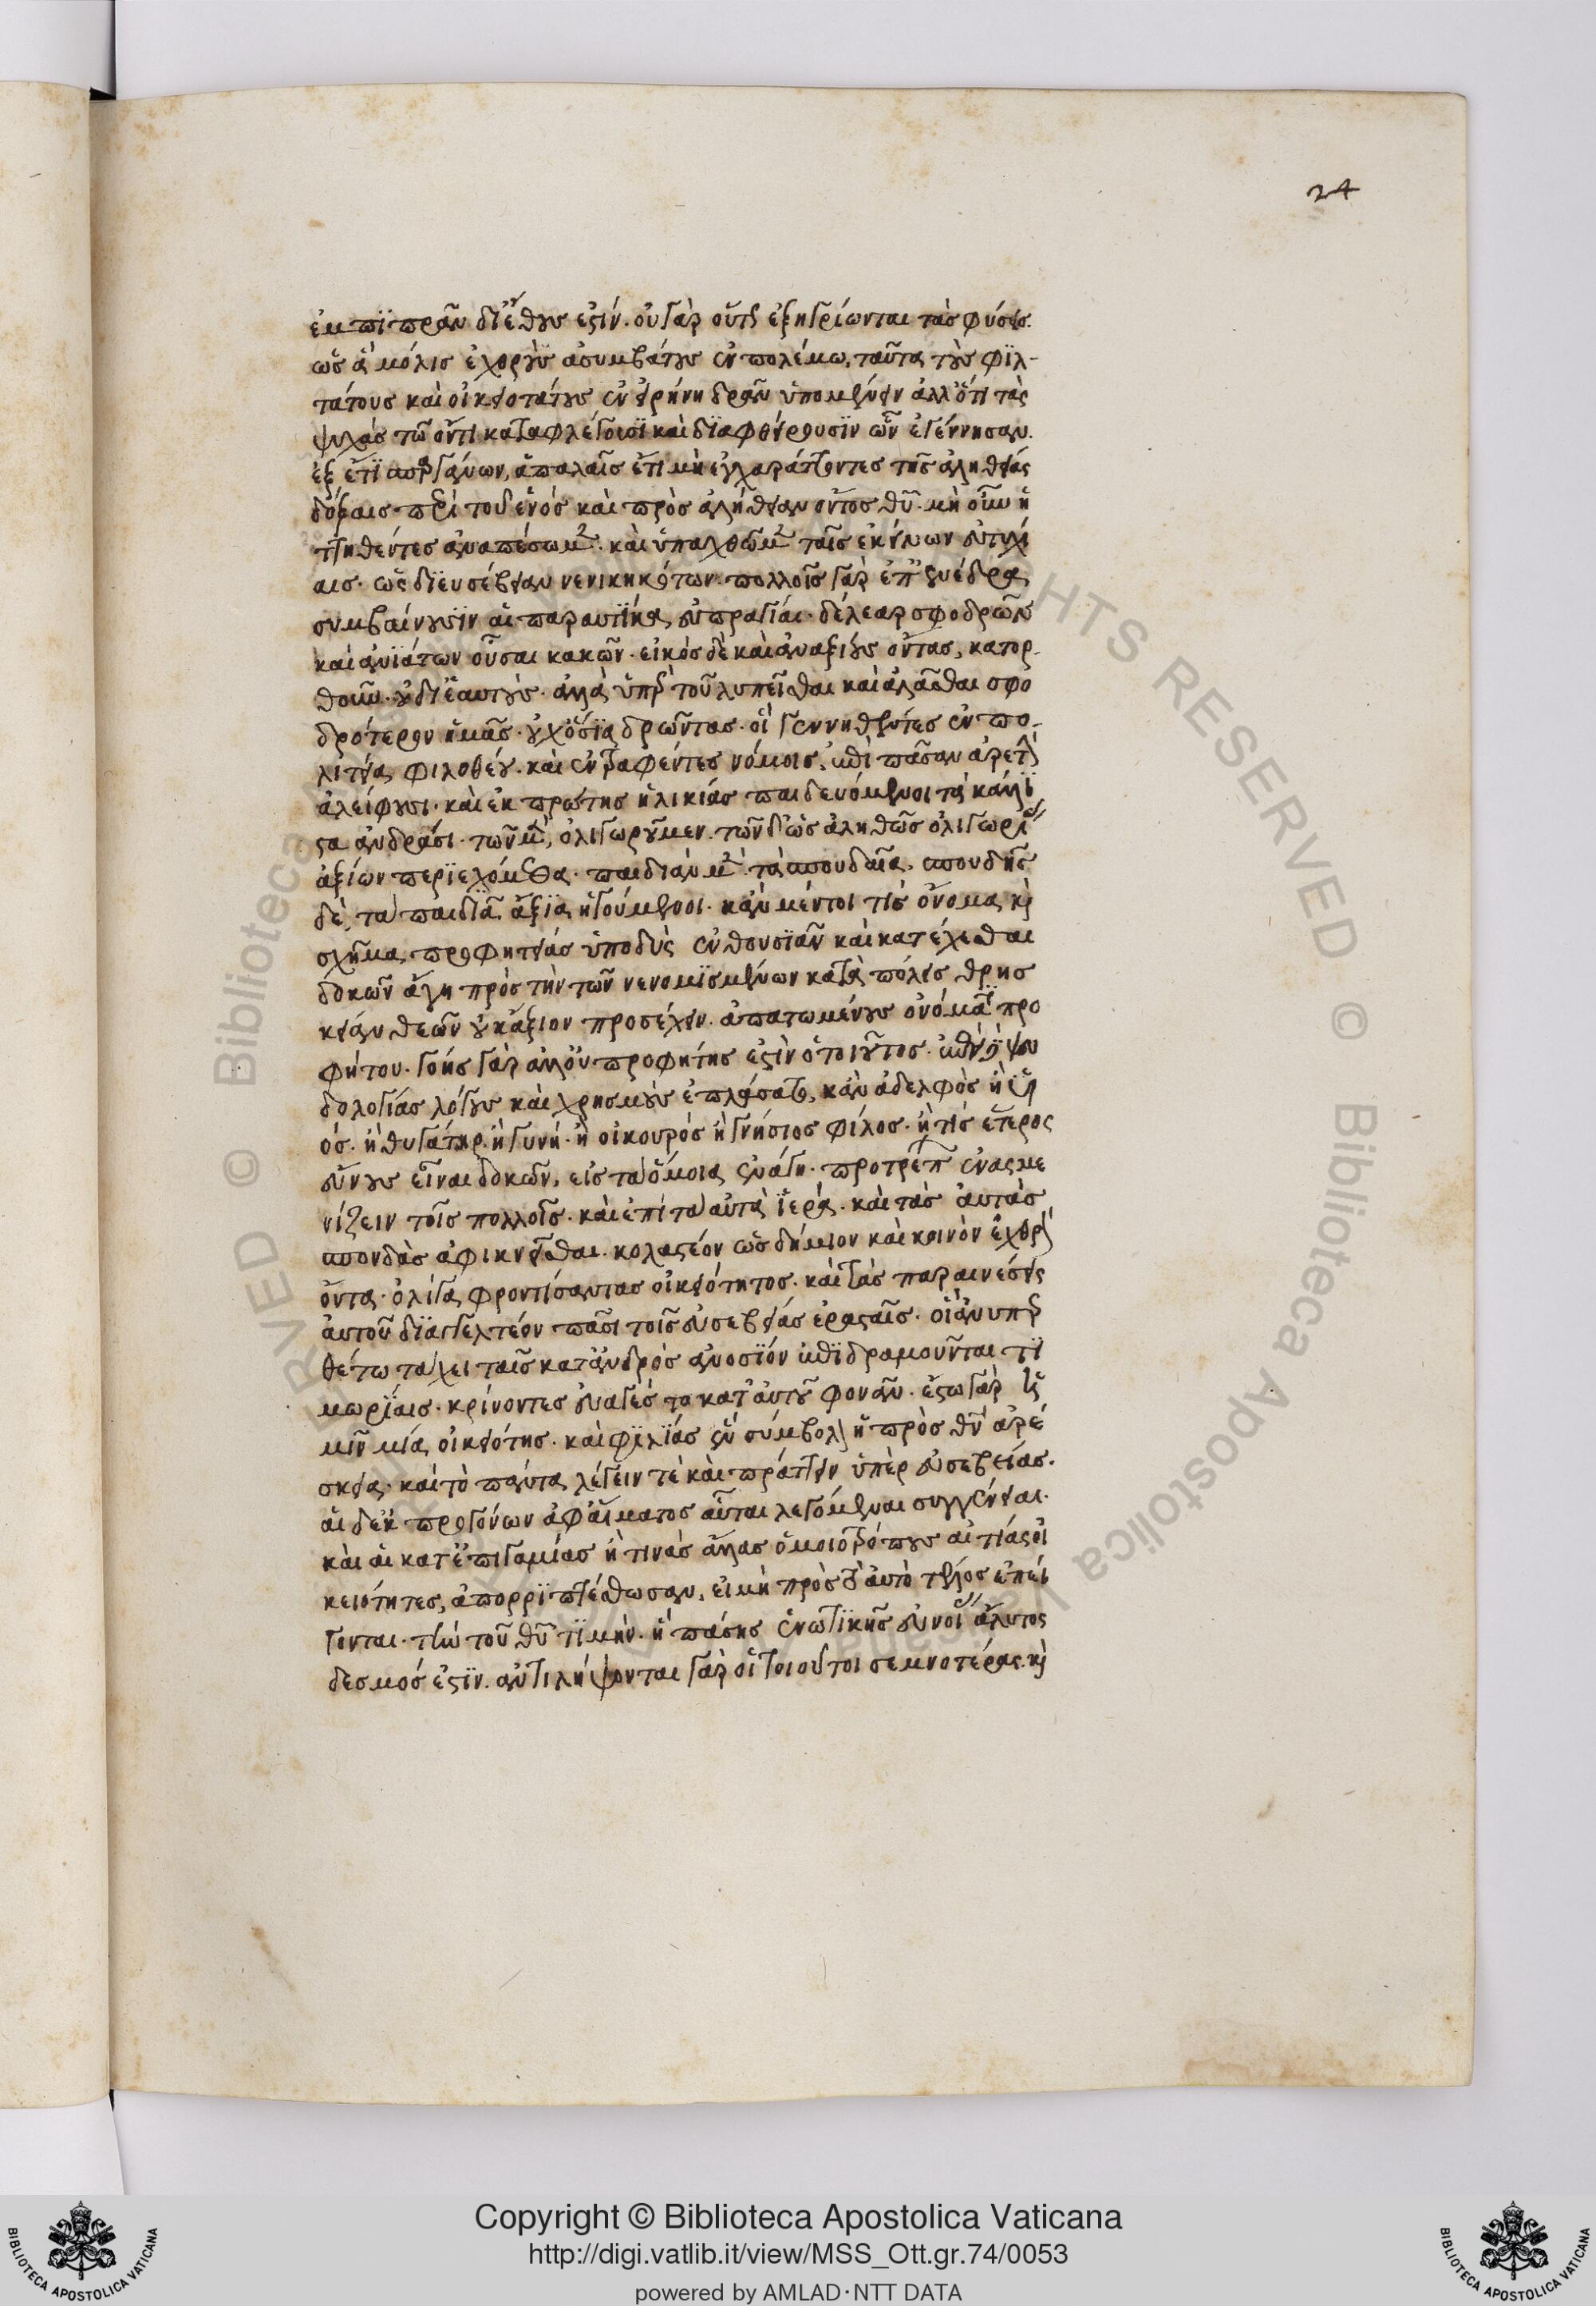 ἐμπϊπρᾶν δι' ἔθους ἐστίν· οὐ γὰρ οὕτως ἐξηγρίωνται τὰς φύσεις·
ὡς ἃ μόλις ἐχθροὺς ἀσυμβάτους ἐν πολέμω, ταῦτα τοὺς φϊλ-
τάτους καὶ οἰκειοτάτους ἐν εἰρήνη δρᾶν ὑπομένειν ἀλλ' ὅτι τὰς
ψυχὰς τῶ ὄντι καταφλέγουσϊ καὶ δϊαφθείρουσϊν ὧν ἐγέννησαν·
ἐξ ἔτϊ σπαργάνων, ἁπαλαῖς ἔτι μὴ ἐγχαράττοντες τῆς ἀληθείας
δόξαις· περὶ τοῦ ἑνὸς καὶ πρὸς ἀλήθειαν ὄντος θῦ· μὴ οὖν ἡ
ττηθέντες ἀναπέσωμεν· καὶ ὑπαχθῶμεν ταῖς ἐκείνων εὐτυχί
αις· ὡς δι' εὐσέβειαν νενικηκότων· πολλοῖς γὰρ ἐπ' ἐνέδρα
συμβαίνουσϊν αἱ παραυτίκα εὐπραγίαι· δέλεαρ σφοδρῶν
καὶ ἀνϊάτων οὖσαι κακῶν· εἰκὸς δὲ καὶ ἀναξίους ὄντας, κατορ-
θοῦν· οὐ δι' ἑαυτούς· ἀλλὰ ὑπὲρ τοῦ λυπεῖσθαι καὶ ἀλγᾶσθαι σφο
δρότερον ἡμᾶς· οὐχ ὅσϊα δρῶντας· οἳ γεννηθέντες ἐν πο-
λιτεία φιλοθέου· καὶ ἐντραφέντες νόμοις, ἐπὶ πᾶσαν ἀρετὴν
ἀλείφουσι· καὶ ἐκ πρώτης ἡλικίας παιδευόμενοι τὰ κάλλϊ
στα ἀνδράσι· τῶν μὲν, ὀλιγωροῦμεν· τῶν δ' ὡς ἀληθῶς ὀλιγωρίας
ἀξίων περιεχόμεθα· παιδιὰν μὲν τὰ σπουδαῖα, σπουδῆς
δὲ, τὰ παιδϊᾶς ἄξϊα ἡγούμενοι· κἂν μέντοι τίς ὄνομα καὶ
σχῆμα προφητείας ὑποδὺς ἐνθουσϊᾶν καὶ κατέχεσθαι
δοκῶν ἄγη πρὸς τὴν τῶν νενομϊσμένων κατὰ πόλεις θρησ
κείαν θεῶν οὐκ ἄξιον προσέχειν· ἀπατωμένους ὀνόματϊ προ
φήτου· γόης γὰρ ἀλλ' οὐ προφήτης ἐστὶν ὁ τοιοῦτος· ἐπειδὴ ψευ
δολογίας λόγους καὶ χρησμοὺς ἐπλάσατο, κἂν ἀδελφὸς ἢ ϋἱ
ός· ἢ θυγάτηρ· ἢ γυνή· ἢ οἰκουρὸς ἢ γνήσιος φίλος· ἤ τις ἕτερος
εὔνους εἶναι δοκῶν, εἰς τὰ ὅμοια ἐνάγη· προτρέπων ἐνασμε
νίζειν τοῖς πολλοῖς· καὶ ἐπὶ τὰ αὐτὰ ἱερὰ· καὶ τὰς αὐτὰς
σπονδὰς ἀφικνεῖσθαι· κολαστέον ὡς δήμιον καὶ κοινὸν ἐχθρὸν
ὄντα· ὀλίγα φροντίσαντας οἰκειότητος· καὶ τὰς παραινέσεις
αὐτοῦ δϊαγγελτέον πᾶσι τοῖς εὐσεβείας ἐρασταῖς· οἳ ἀνυπερ
θέτω τάχει ταῖς κατ' ἀνδρὸς ἀνοσϊου ἐπϊδραμοῦνται τϊ
μωρίαις· κρίνοντες εὐαγὲς τὸ κατ' αὐτοῦ φονᾶν· ἔστω γὰρ ἡ
μῖν μία οἰκειότης· καὶ φϊλϊας ἓν σύμβολον ἡ πρὸς θν̅ ἀρέ
σκεια· καὶ τὸ πάντα λέγειν τὲ καὶ πράττειν ὑπὲρ εὐσεβείας·
αἱ δ' ἐκ προγόνων ἀφ' αἵματος αὗται λεγόμεναι συγγένειαι·
καὶ αἱ κατ' ἐπιγαμίας ἤ τινας ἄλλας ὁμοιοτρόπους αἰτίας οἰ
κειότητες, ἀπορρϊπτέσθωσαν, εἰ μὴ πρὸς τὸ αὐτὸ τέλος ἐπεί
γονται· τὴν τοῦ θῦ τϊμὴν· ἣ πάσης ἑνωτϊκῆς εὐνοίας ἄλυτος
δεσμός ἐστϊν· ἀντιλήψονται γὰρ οἱ τοιοῦτοι σεμνοτέρας καὶ
24
Copyright © Biblioteca Apostolica Vaticana
http://digi.vatlib.it/view/MSS_Ott.gr.74/0053
powered by AMLAD·NTT DATA